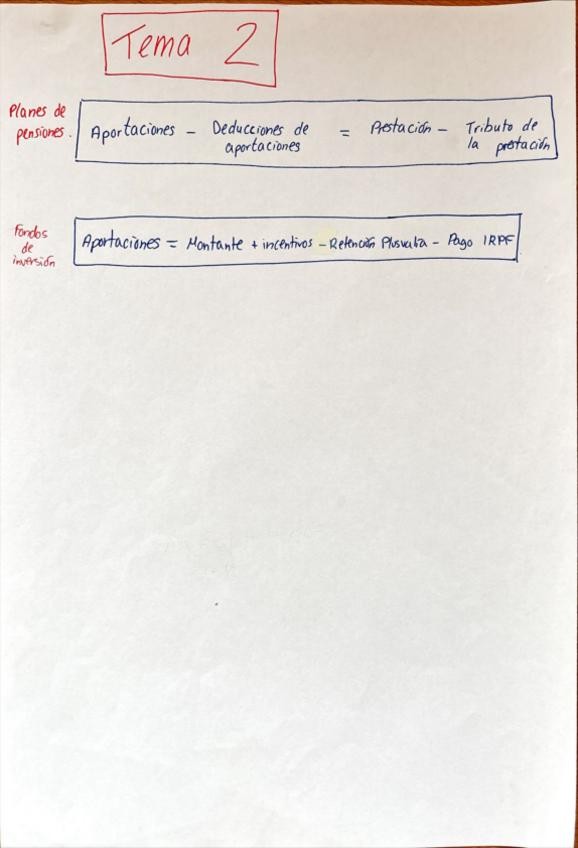 Tema 2
Planes de
pensiones.
Aportaciones - Deducciones de aportaciones = Prestación - Tributo de la prestación
Fondos
de
inversión
Aportaciones = Montante + incentivos - Retención Plusvalía - Pago IRPF